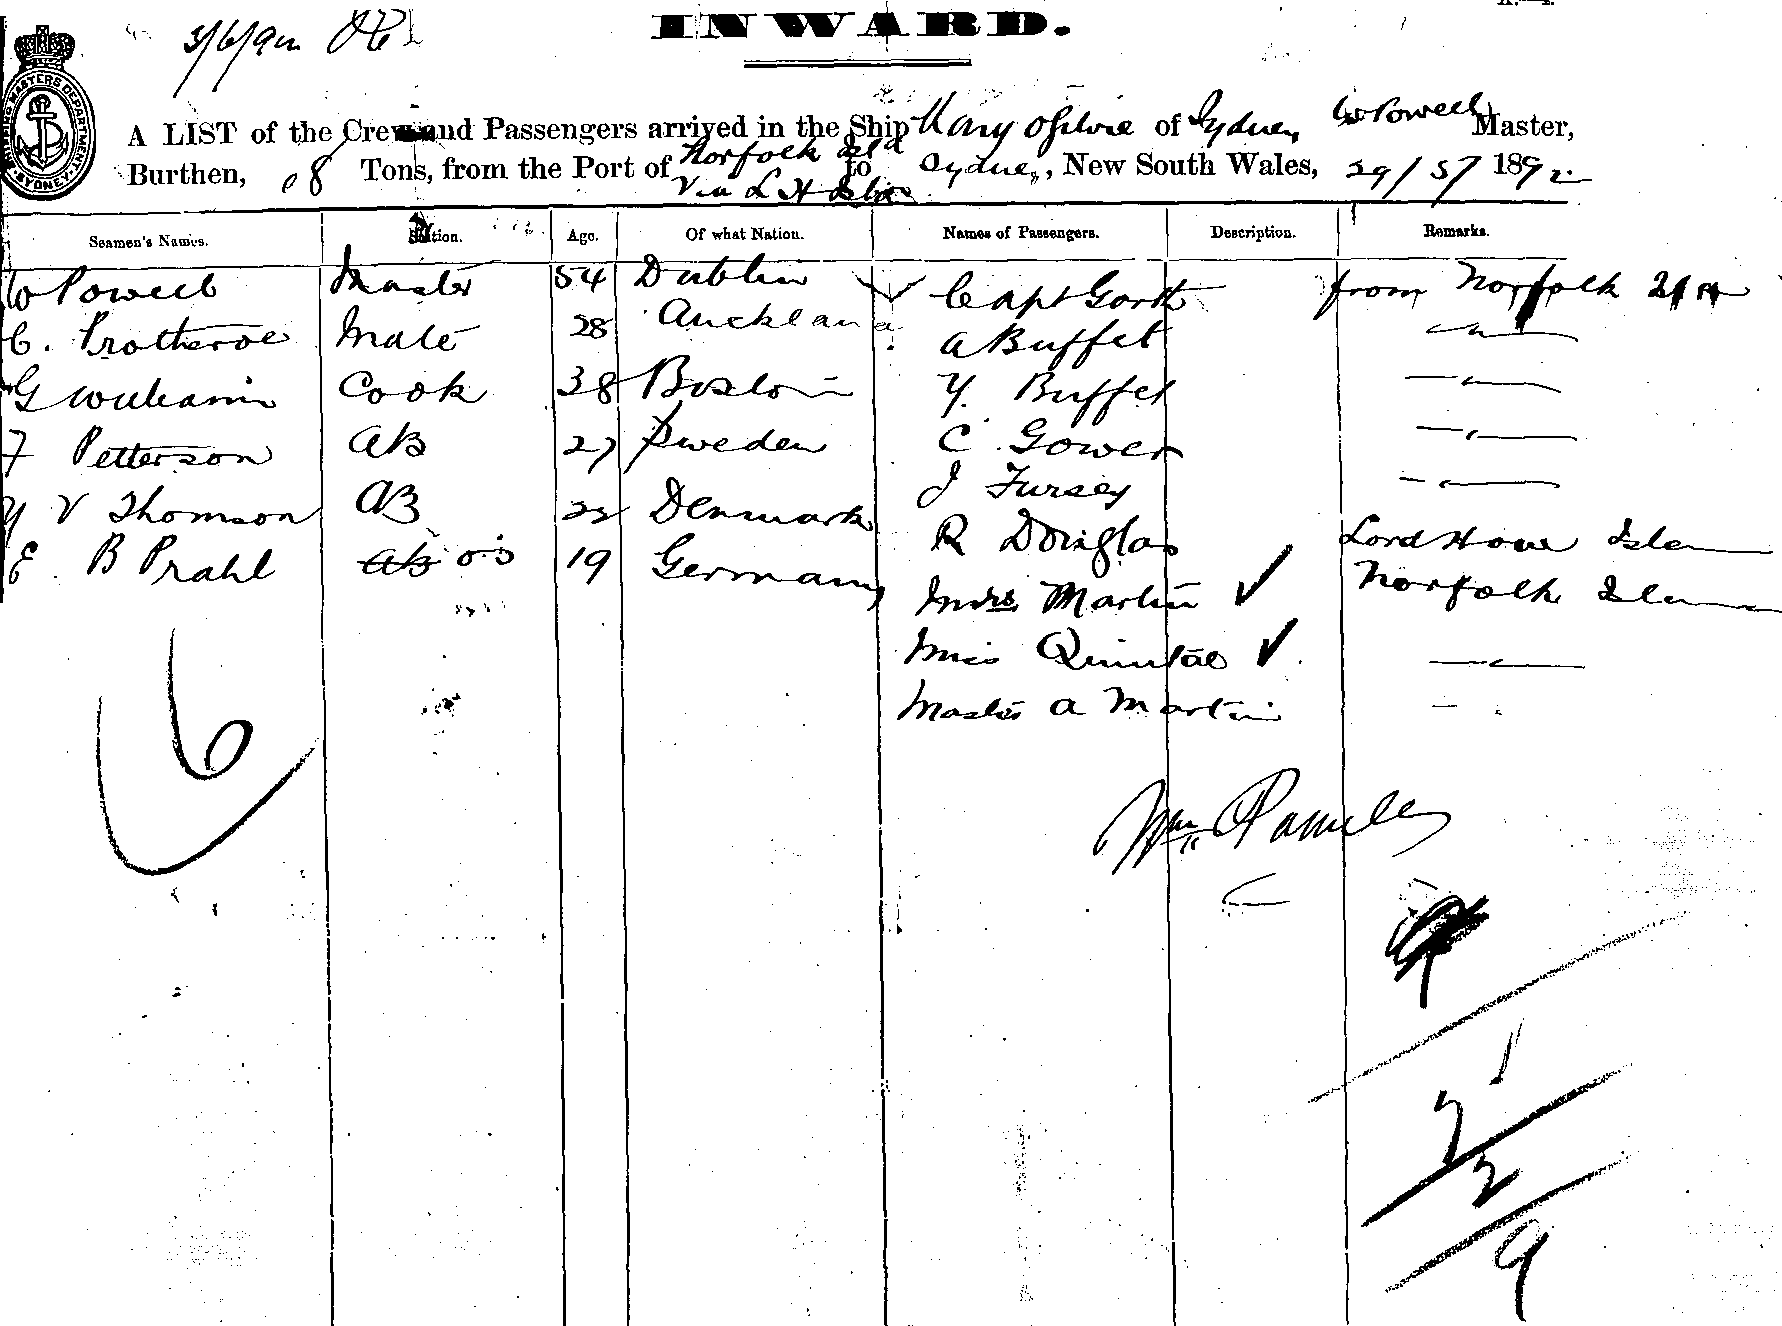 3/6/92
INWARD.
SHIPPING MASTERS DEPARTMENT SYDNEY
A LIST of the Crew and Passengers arrived in the Ship Mary Ogilvie of Sydney W Powell Master,
Burthen, 68 Tons, from the Port of Norfolk Isld Via L H Islan to Sydney, New South Wales, 29/5/ 1892
Seamen's Names. Station. Age. Of what Nation. Names of Passengers. Description. Remarks.
W Powell Master 54 Dublin Capt Gorth from Norfolk
C. Protheroe Mate 28 Auckland A Buffet
G Williams Cook 38 Boston Y. Buffet
F Petterson AB 27 Sweden C Gower
Y V Thomson AB 22 Denmark J Fursey
E. B Prahl AB OS 19 Germany R Douglas Lord Howe Islan
Mrs Martin Norfolk Islan
Miss Quintal
Master A Martin
6
Wm
1
2
2
9